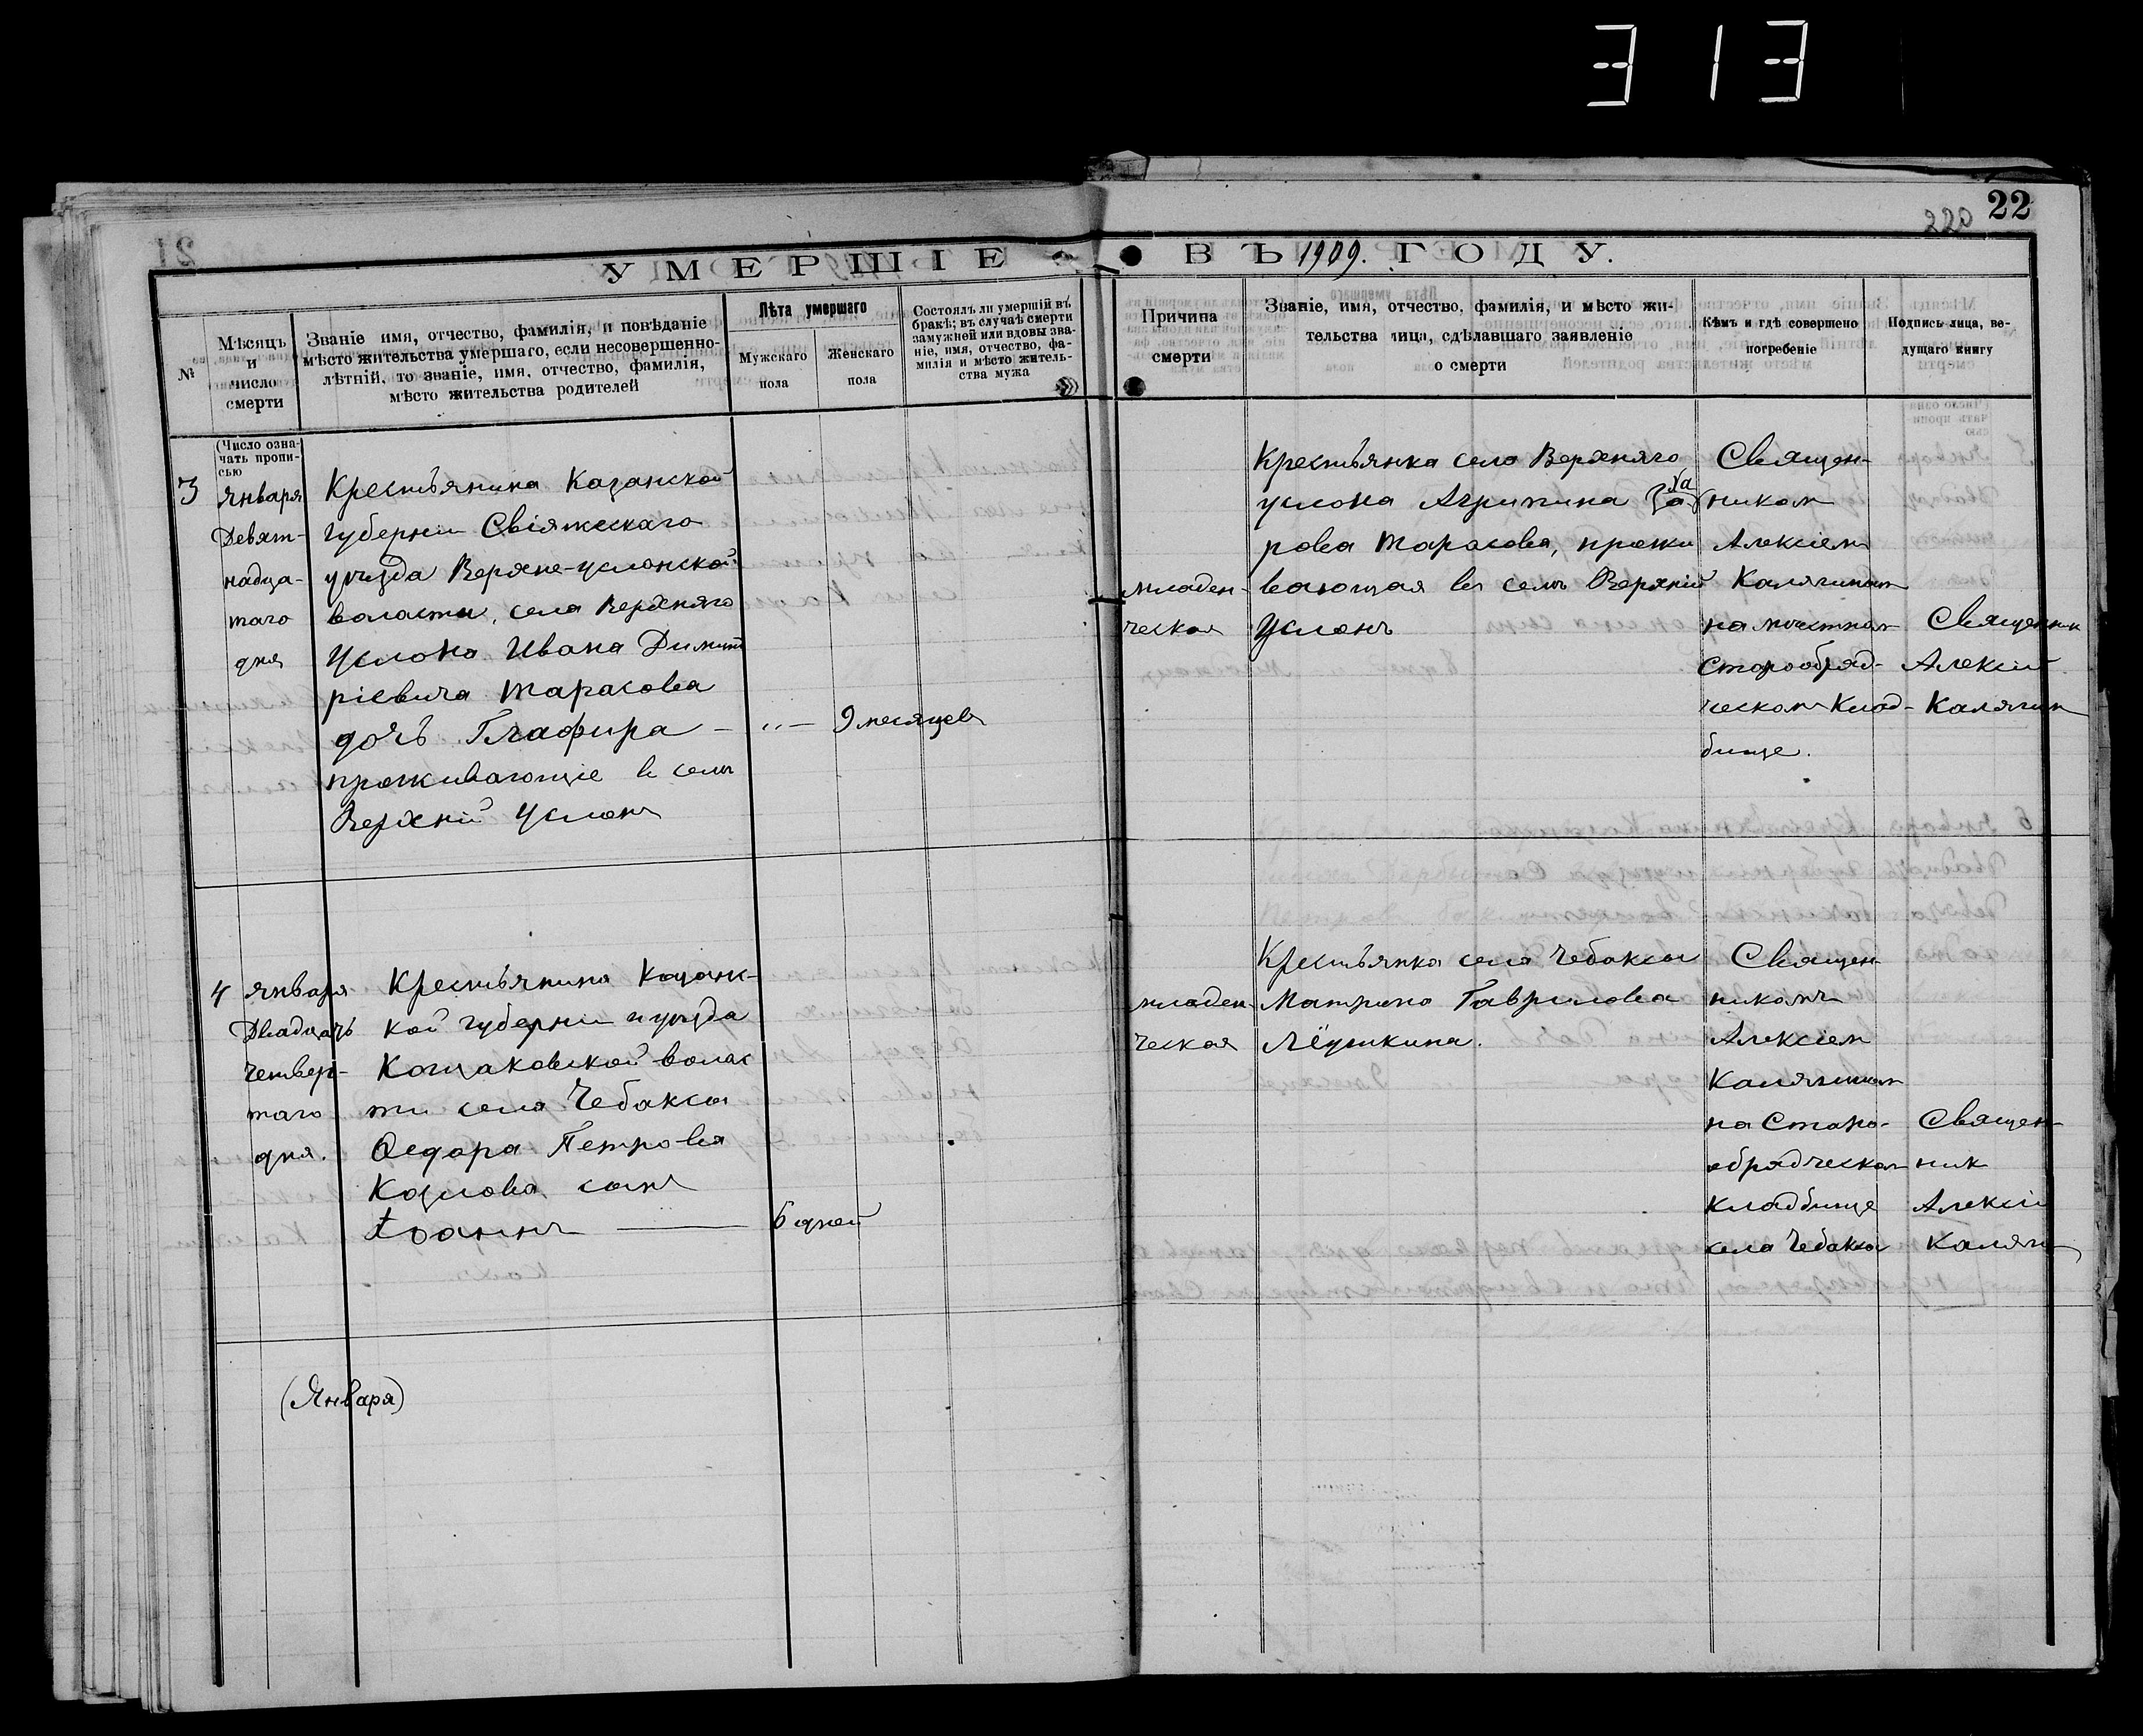 313
22
220
УМЕРШІЕ ВЪ 1909. ГОДУ.
№
Мѣсяцъ
и
число
смерти
Званіе имя, отчество, фамилія, и повѣданіе
мѣсто жительства умершаго, если несовершенно-
лѣтній, то званіе, имя, отчество, фамилія,
мѣсто жительства родителей
Лѣта умершаго
Мужскаго
пола
Женскаго
пола
Состоялъ ли умершій въ
бракѣ; въ случаѣ смерти
замужней или вдовы зва-
ніе, имя, отчество, фа-
милія и мѣсто житель-
ства мужа
Причина
смерти
Званіе, имя, отчество, фамилія, и мѣсто жи-
тельства лица, сдѣлавшаго заявленіе
о смерти
Кѣмъ и гдѣ совершено
погребеніе
Подпись лица, ве-
дущаго книгу
(Число озна-
чать пропи-
сью
3
Января
Девят-
надца-
таго
дня
Крестьянина Казанской
губерни Свіяжскаго
уѣзда Верхне-услонской
воласти, села Верхняго
Услона Ивана Димит
ріевича Тарасова
дочь Глафира —
проживающіе в селѣ
Верхній Услонъ
„ — 9 месяцев
младен-
ческая
Крестьянка села Верхняго
услона Агрипина
рова Тарасова, прожи
вающая в селѣ Верхній
Услонъ
Священ-
ником
Алексіем
Калягиным
на местном
старообряд-
ческом Клад-
бище.
Священник
Алексій
Калягин
4
января
Двадцать
четвер-
таго
дня.
Крестьянина Казанс-
кой губерни и уѣзда
Кощаковской волас
ти села Чебаксы
Ѳедора Петрова
Козлова сынъ
Іоаннъ —
6 дней
младен-
ческая
Крестьянка села Чебаксы
Матрина Гаврилова
Лёушкина.
Священ-
никомъ
Алексіем
Калягиным
на Старо-
обрядческом
кладбище
села Чебаксы
Священ-
ник
Алексій
Калягин
(Января)